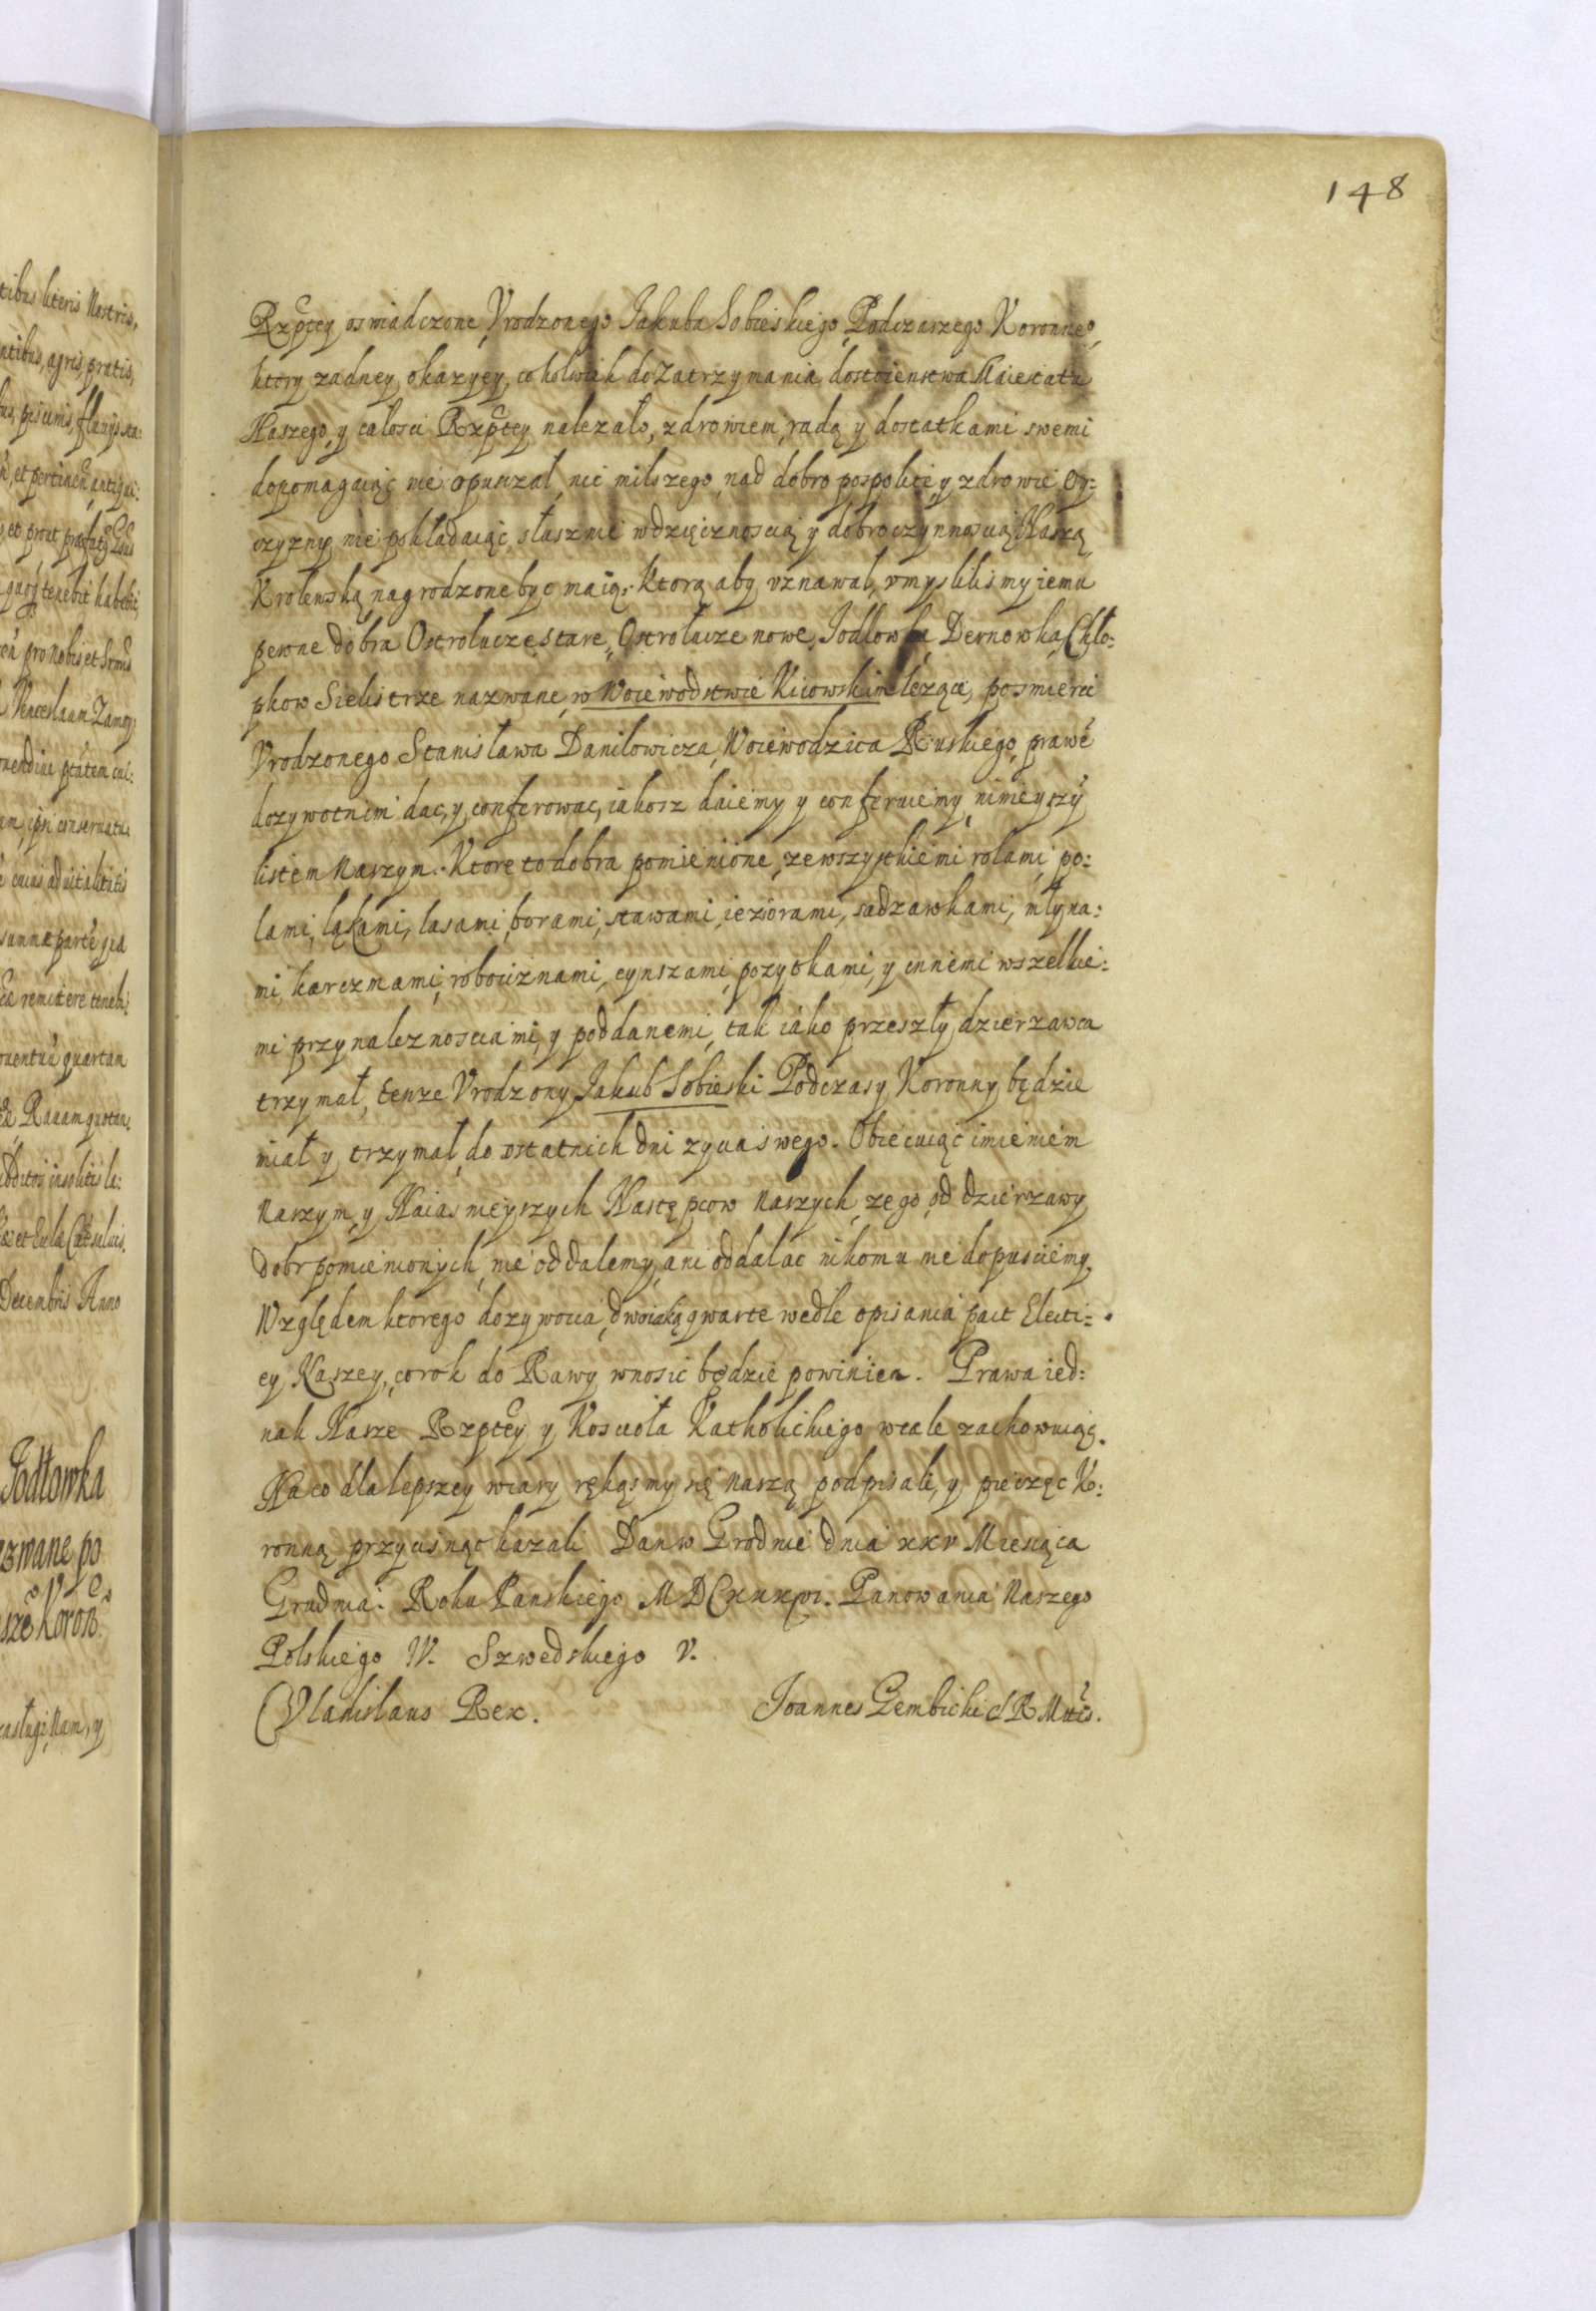 148
Rzptey oswiadczone Vrodzonego Jakuba Sobieskiego, Podczaszego Koronneo,
ktory zadney okazyey, cokolwiek do zatrzymania dostoienstwa Maiestatu
Naszego, y całosci Rzptey nalezało, zdrowiem, radą y dostatkami swemi
dopomagaiąc nie opuszczał, nic milszego, nad dobro pospolite, y zdrowie Oy=
czyzny nie pokładaiąc, słusznie wdzięcznoscią y dobroczynnoscią Naszą
Krolewską nagrodzone byc maią. Ktorą aby vznawał, vmyslilismy iemu
pewne dobra Ostrołucze stare, Ostrołucze nowe, Jodłowka, Dernowka, Chło=
pkow Sielistrze nazwane, w Woiewodstwie Kiiowskim lezące, po smierci
Vrodzonego Stanisława Daniłowicza, Woiewodzica Ruskiego, prawe
dozywotnim dac, y conferowac, iakosz daiemy y conferuiemy, ninieyszy
listem naszym. Ktore to dobra pomienione, ze wszystkiemi rolami, po=
lami, łąkami, lasami, borami, stawami, ieziorami, sadzawkami, młyna=
mi, karczmami, robociznami, cynszami, pozytkami, y innemi wszelkie=
mi przynaleznosciami, y poddanemi, tak iako przeszły dzierzawca
trzymał, tenze Vrodzony Jakub Sobieski Podczasy Koronny będzie
miał y trzymał, do ostatnich dni zycia swego. Obiecuiąc imieniem
naszym, y Naiasnieyszych Następcow naszych, ze go od dzierzawy
dobr pomienionych, nie oddalemy, ani oddalac nikomu nie dopusciemy.
Względem ktorego dozywocia, dwoiaką qwarte wedle opisania pact Electi=
ey Naszey, co rok do Rawy wnosic będzie powinien. Prawa ied=
nak Nasze Rzptey y Koscioła Katholickiego wcale zachowuiąc.
Na co dla lepszey wiary ręką smy się naszą podpisali, y pieczęc Ko=
ronną przycisnąc kazali Dan w Grodnie dnia xxv Miesiąca
Grudnia. Roku Panskiego Panowania Naszego
Polskiego IV. Szwedskiego V.
Vladislaus Rex. Joannes Gembicki
tibus literis Nostris,
agris, pratis,
Venceslaum Zamoy
Decembris Anno
Jodłowka
nazwane po
zasługi Nam, y